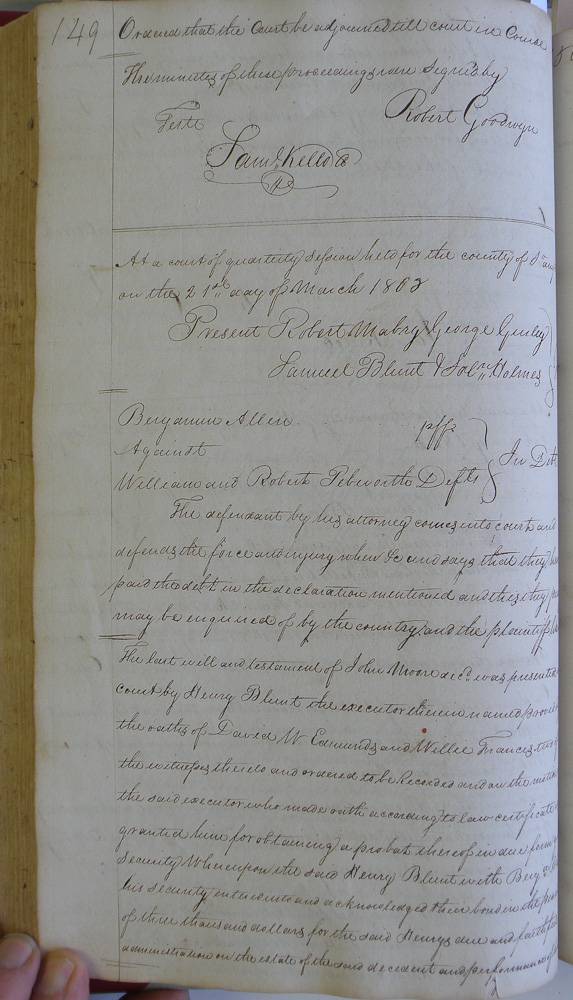 149
Ordered that the Court be adjourned till court in Course
The minutes of these proceedings were Signed by
Teste
Robert Goodwyn
Saml. Kello
At a court of quarterly Session held for the county of
on the 21st day of March 1803
Present Robert Mabry George Gurley
Samuel Blunt & Jobn. Holmes
Benjamin Allen pff
Against
William and Robert Pebworth Defts
In Det
The defendant by his attorney comes into court and
defends the force and injury when &c and says that they
paid the debt in the declaration mentioned and this they
may be enquired of by the country and the plaintiff
The last will and testament of John Moore decd. was presented
court by Henry Blunt the executor therein named proved
the oaths of David W Edmunds and Willie Francis
the witnesses thereto and ordered to be Recorded and on the motion
the said executor who made oath according to law certificate
granted him for obtaining a probat thereof in due form
Security Whereupon the said Henry Blunt with Benj
his security entered into and acknowledged their bond in the
of three thousand dollars for the said Henrys due and faithful
administration on the estate of the said decedent and performance of